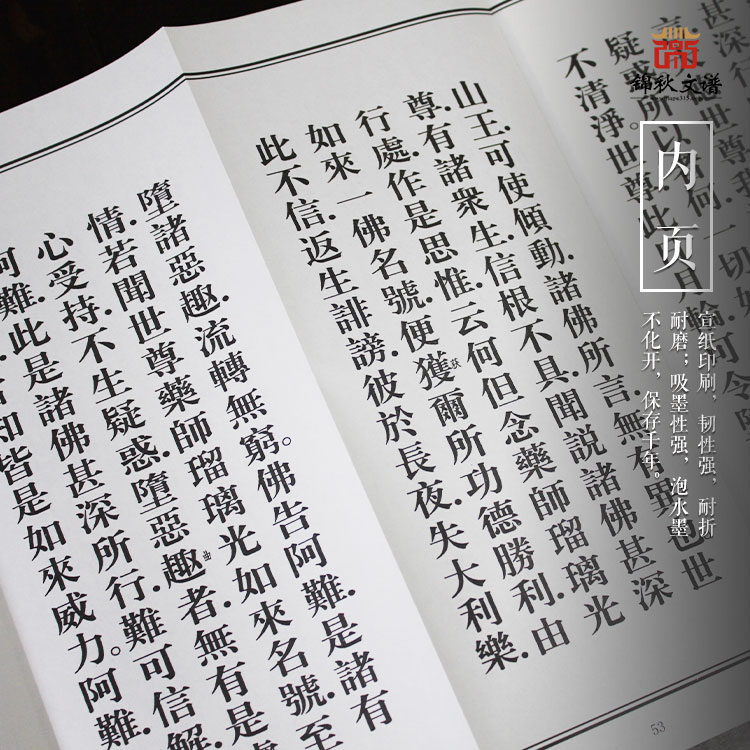 錦秋文谱
内页
宣纸印刷，韧性强，耐折
耐磨；吸墨性强，泡水墨
不化开，保存千年。
甚深行
疑惑所以何.一切.如
不清淨。世尊.此月輪.可令
山王.可使傾動.諸佛所言.無有異也世
尊.有諸衆生.信根不具.聞說諸佛甚深
行處.作是思惟.云何但念藥師瑠璃光
如來一佛名號.便獲获爾所功德勝利.由
此不信.返生誹謗.彼於長夜.失大利樂.
墮諸惡趣.流轉無窮。佛告阿難.是諸有
情.若聞世尊藥師瑠璃光如來名號.至
心受持.不生疑惑.墮惡趣曲者.無有是處
阿難.此是諸佛甚深所行.難可信解.
知.皆是如來威力。阿難.
53